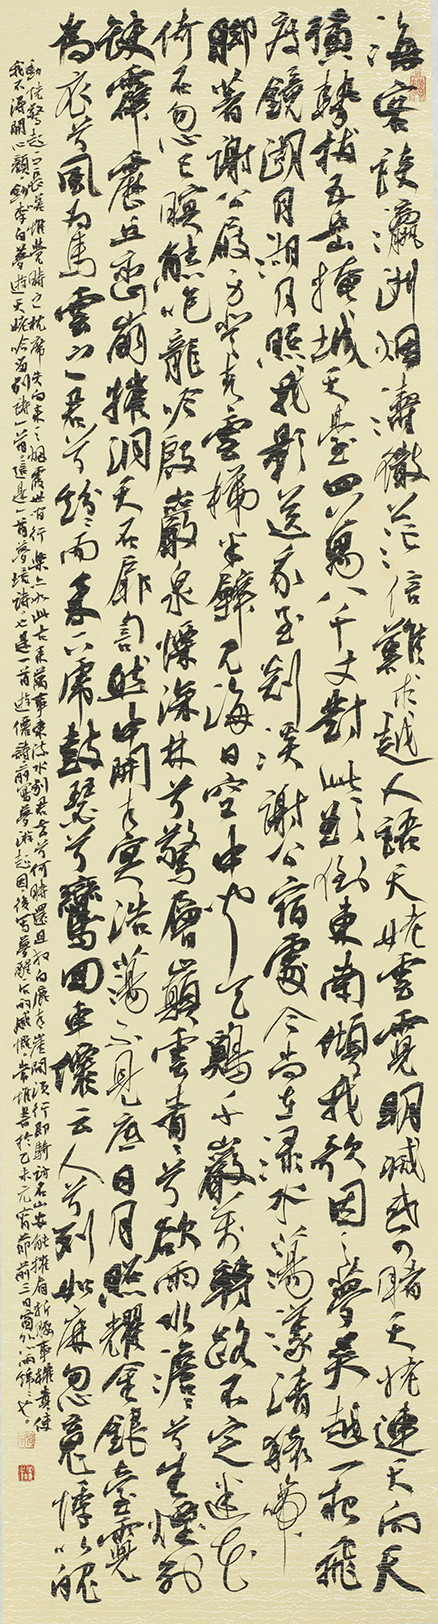 海客談瀛洲烟濤微茫信難求越人語天姥雲霓明滅或可睹天姥連天向天
橫勢拔五岳掩城天臺四萬八千丈對此欲倒東南傾我欲因之夢吳越一夜飛
度鏡湖月湖月照我影送我至剡溪謝公宿處今尚在淥水蕩漾清猿啼
腳著謝公屐身登青雲梯半壁見海日空中聞天鷄千巖萬轉路不定迷花
倚石忽已暝熊咆龍吟殷巖泉慄深林兮驚層巔雲青青兮欲雨水澹澹兮生煙列
缺霹靂丘巒崩摧洞天石扉訇然中開青冥浩蕩不見底日月照耀金銀臺霓
為衣兮風為馬雲之君兮紛紛而來下虎鼓瑟兮鸞回車仙之人兮列如麻忽魂悸以魄
動怳驚起而長嗟惟覺時之枕席失向來之烟霞世間行樂亦如此古來萬事東流水別君去兮何時還且放白鹿青崖間須行即騎訪名山安能摧眉折腰事權貴使
我不得開心顏 李白夢遊天姥吟留別詩一首這是一首夢境詩也是一首遊仙詩前寫夢游起因後寫夢醒后的感慨 於乙未元宵節前三日窗外雨